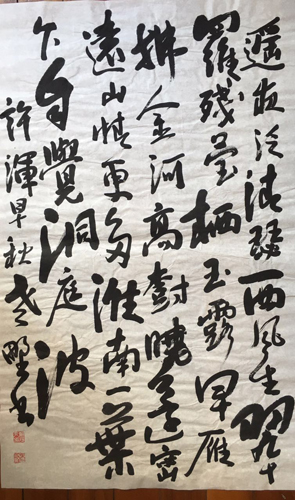 遥夜泛清瑟西風生翠
羅殘螢栖玉露早雁
拂金河高樹曉還密
遠山晴更多淮南一葉
下自覺洞庭波
許渾早秋